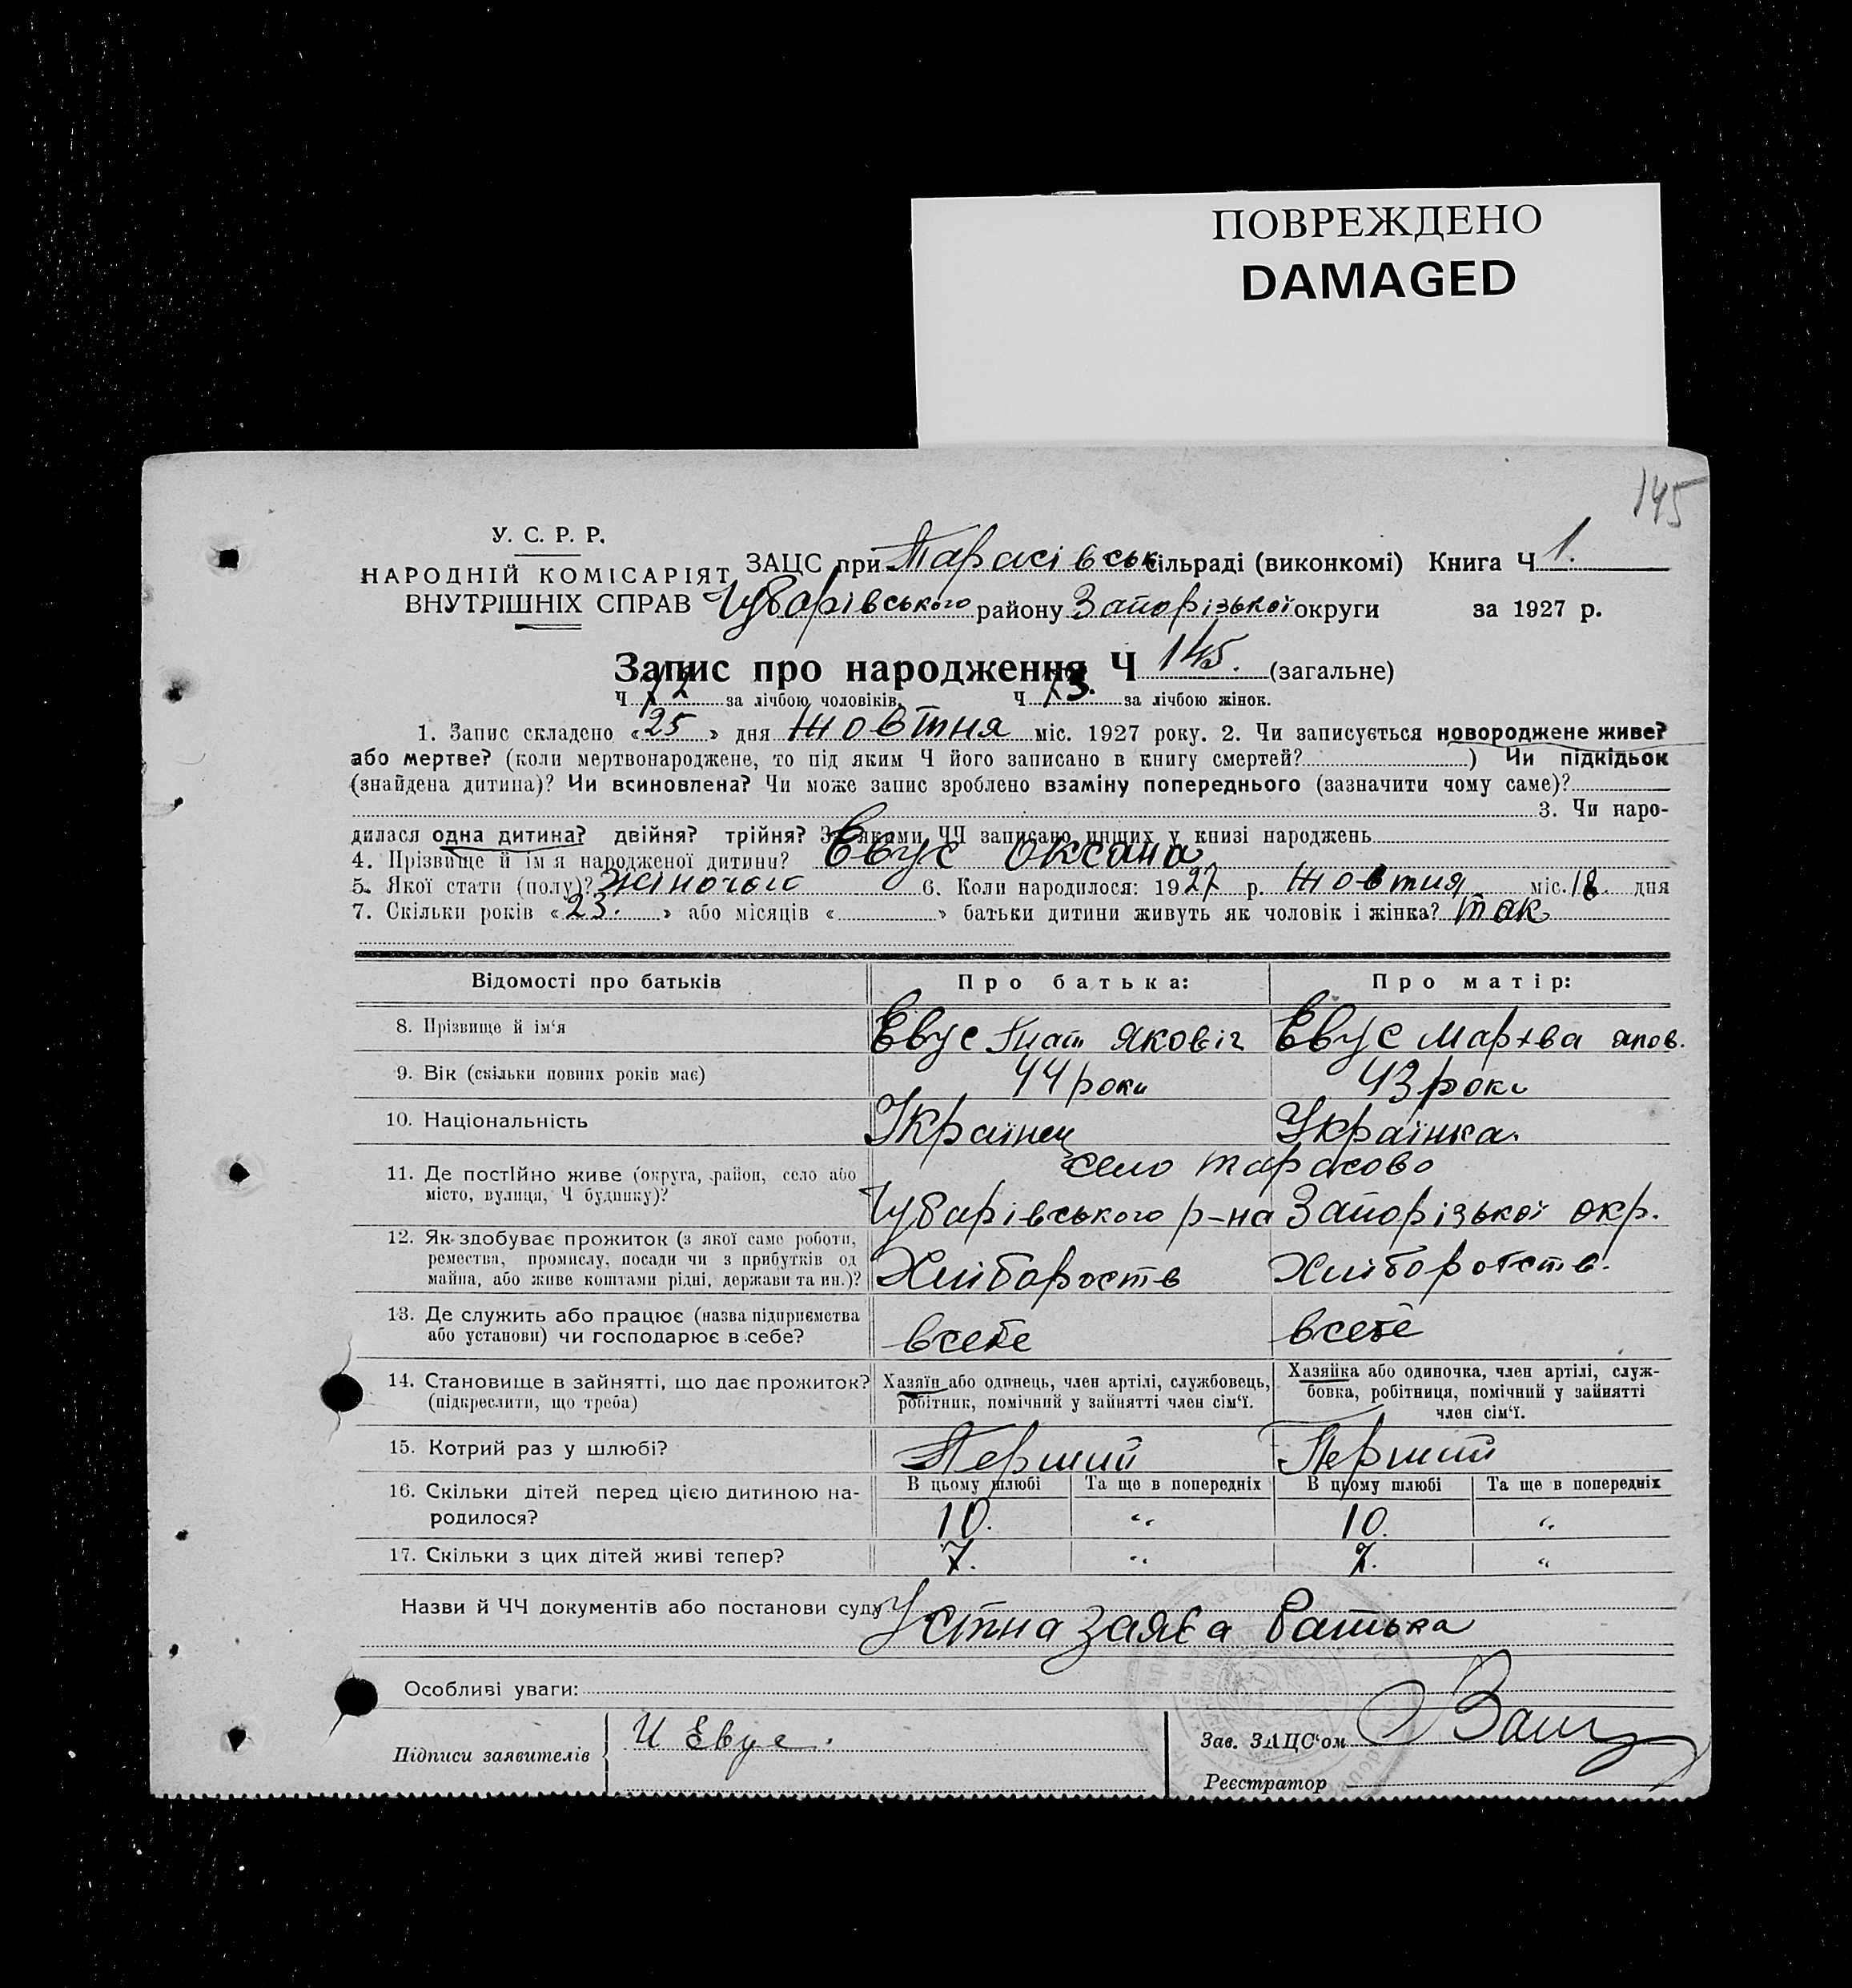 ПОВРЕЖДЕНО
DAMAGED
145
У. С. Р. Р.
НАРОДНІЙ КОМІСАРІЯТ
ВНУТРІШНІХ СПРАВ
ЗАЦС при Тарасівськ сільраді (виконкомі) Книга Ч 1.
Чубарівського району Запорізької округи за 1927 р.
Запис про народження Ч 145. (загальне)
Ч 72 за лічбою чоловіків. Ч 73. за лічбою жінок.
1. Запис складено « 25 » дня жовтня міс. 1927 року. 2. Чи записується новороджене живе?
або мертве? (коли мертвонароджене, то під яким Ч його записано в книгу смертей? ) Чи підкідьок
(знайдена дитина)? Чи всиновлена? Чи може запис зроблено взаміну попереднього (зазначити чому саме)?
3. Чи наро-
дилася одна дитина? двійня? трійня? За якими ЧЧ записано инших у книзі народжень
4. Прізвище й ім'я народженої дитини? Євус Оксана
5. Якої стати (полу)? жіночого 6. Коли народилося: 1927 р. жовтня міс. 18. дня
7. Скільки років « 23. » або місяців « » батьки дитини живуть як чоловік і жінка? так
Відомості про батьків Про батька: Про матір:
8. Прізвище й ім'я Євус Гнат Яковіч Євус Мархва
9. Вік (скільки повних років має) 44 роки 43 роки
10. Національність Українец Українка.
11. Де постійно живе (округа, район, село або
місто, вулиця, Ч будинку)?
село Тарасово
Чубарівського р-на Запорізької окр.
12. Як здобуває прожиток (з якої саме роботи,
ремества, промислу, посади чи з прибутків од
майна, або живе коштами рідні, держави та ин.)?
Хлибороств Хлиборобств.
13. Де служить або працює (назва підприємства
або установи) чи господарює в себе?
всебе всебе
14. Становище в зайнятті, що дає прожиток?
(підкреслити, що треба)
Хазяїн або одинець, член артілі, службовець,
робітник, помічний у зайнятті член сім'ї.
Хазяйка або одиночка, член артілі, служ-
бовка, робітниця, помічний у зайнятті
член сім'ї.
15. Котрий раз у шлюбі? Перший Перший
16. Скільки дітей перед цією дитиною на-
родилося?
В цьому шлюбі Та ще в попередніх В цьому шлюбі Та ще в попередніх
10. " 10. "
17. Скільки з цих дітей живі тепер? 7. " 7. "
Назви й ЧЧ документів або постанови суду Устна заява батька
Особливі уваги:
Підписи заявителів И Евус.
Зав. ЗАЦС'ом
Реєстратор